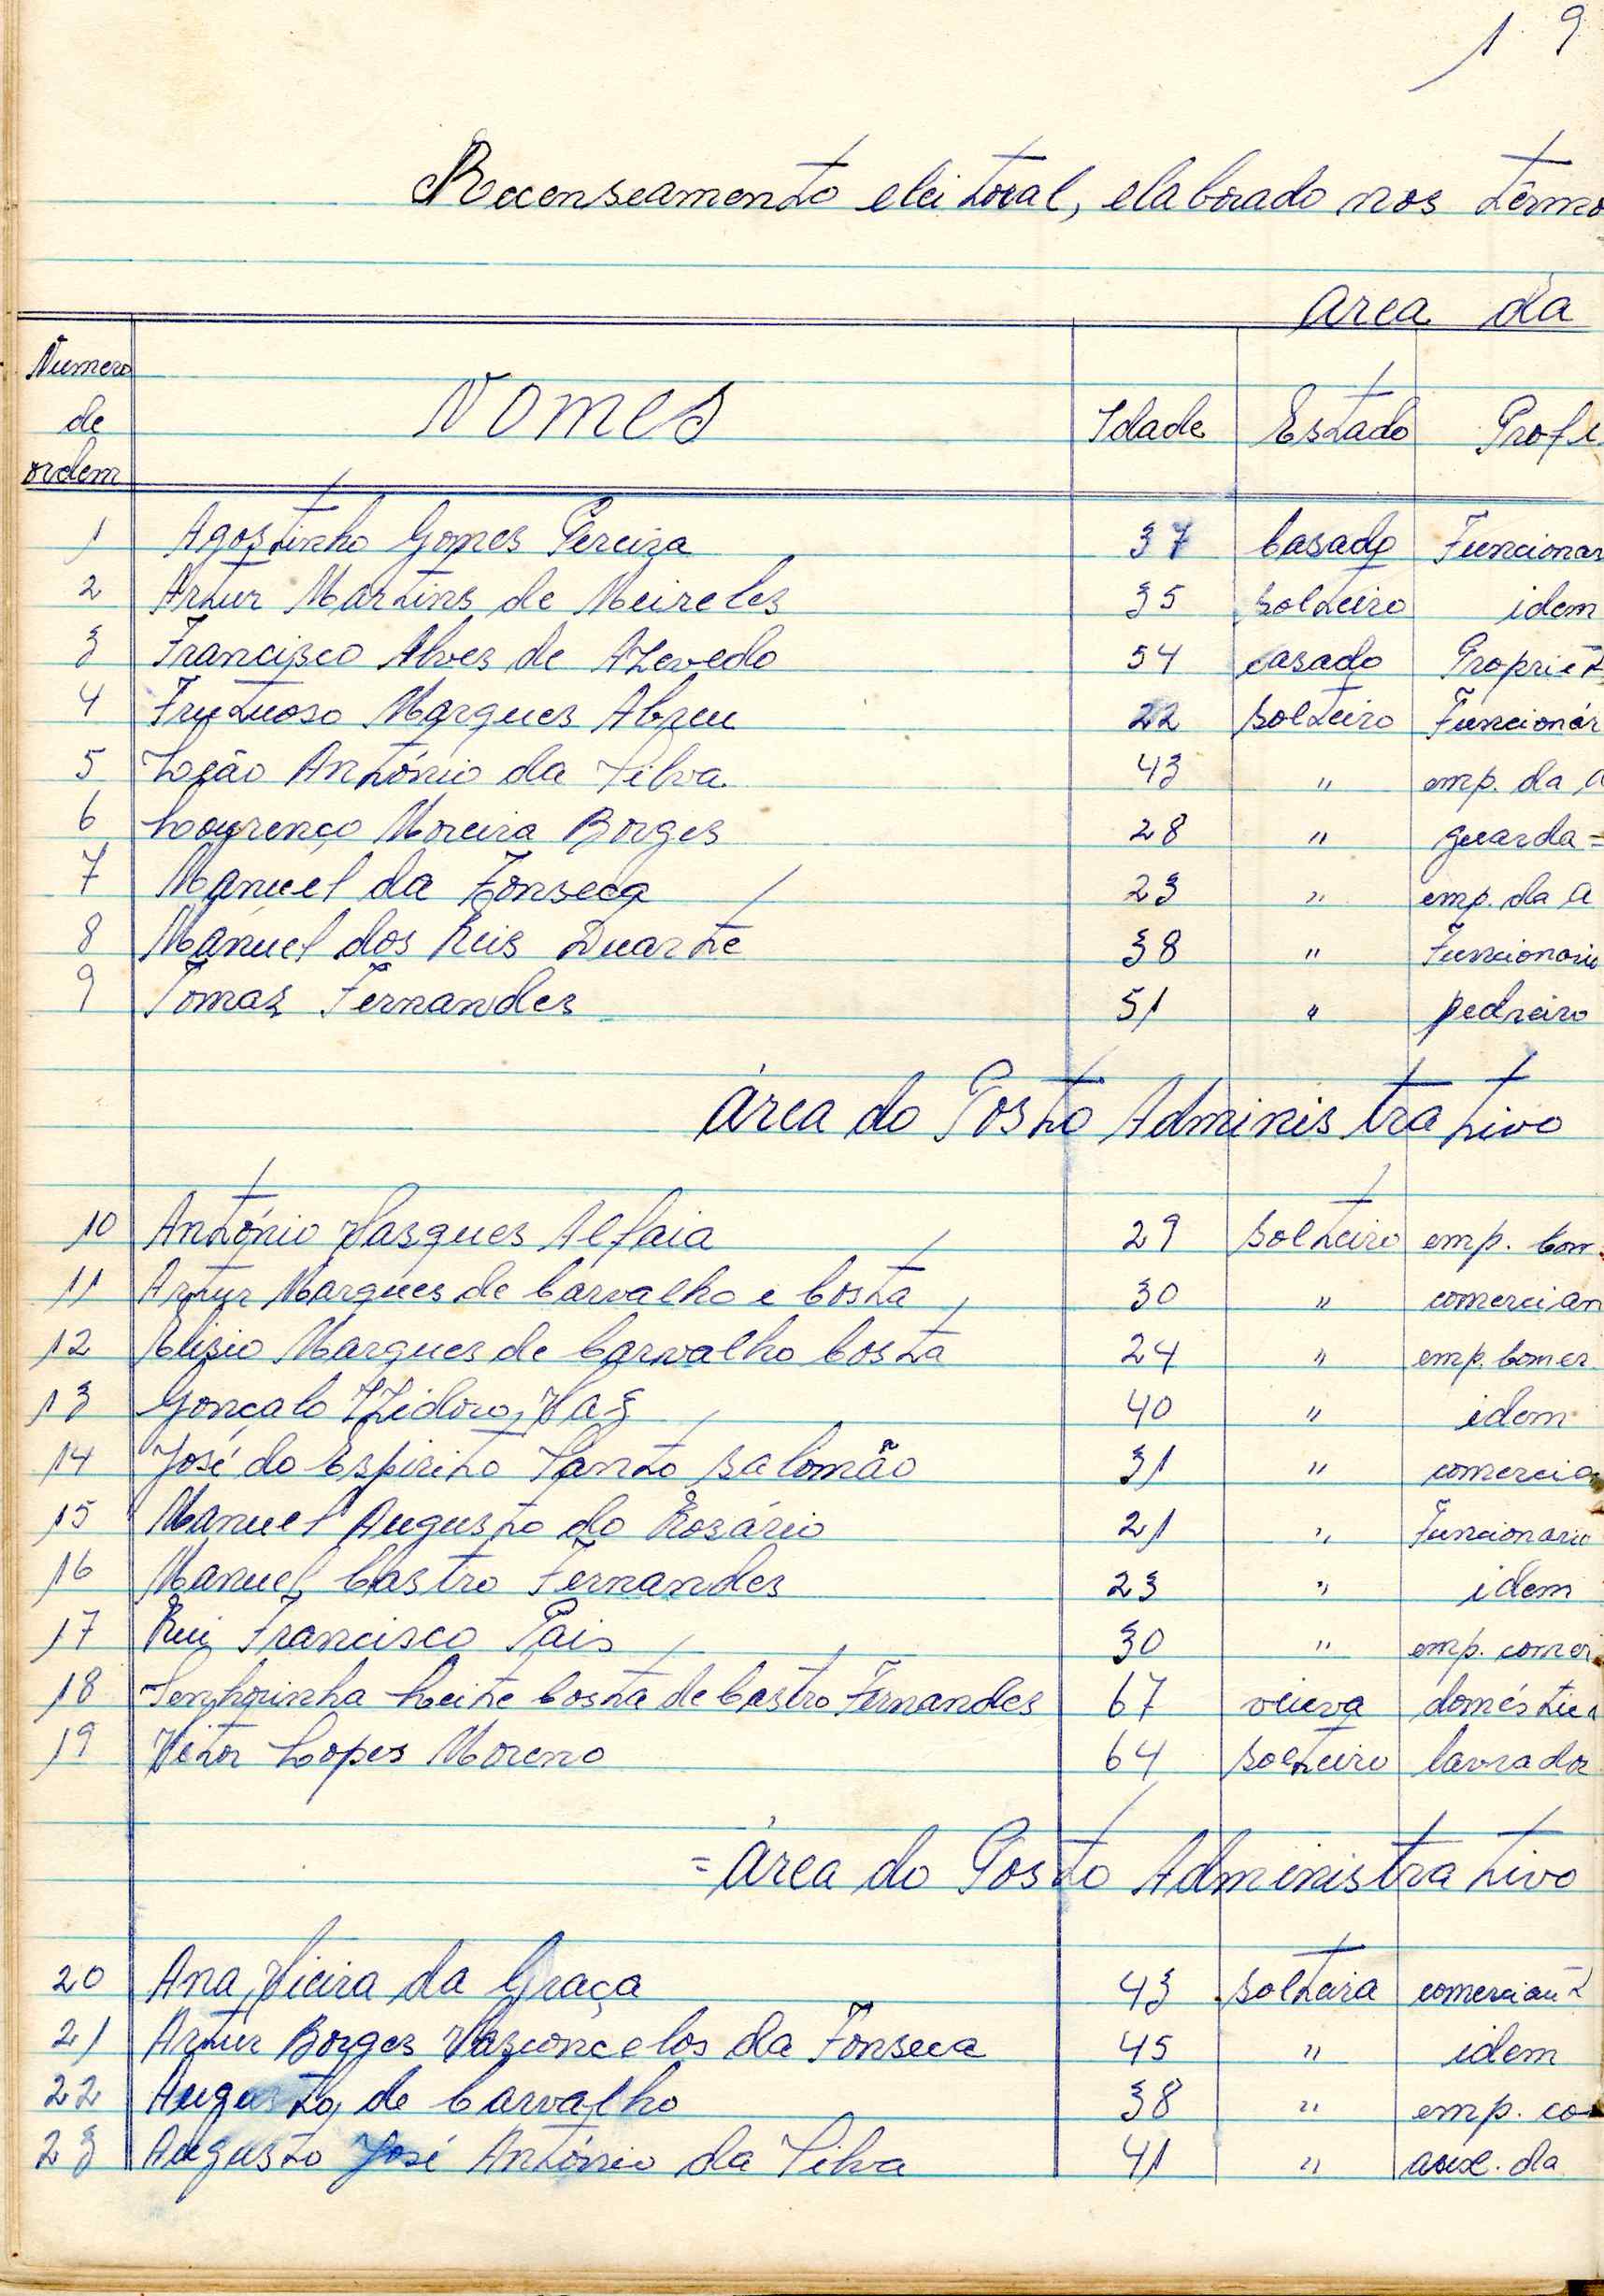 19
Recenseamento eleitoral, elaborado nos têrmo
Area da
Numero de ordem Nomes Idade Estado Profi
1 Agostinho Gomes Pereira 37 Casado Funcionar
2 Artur Martins de Meireles 35 solteiro idem
3 Francisco Alves de Azevedo 54 casado Propriet
4 Frutuoso Marques Abreu 22 solteiro Funcionár
5 António da Silva 43 " emp. da a
6 Lourenço Moreira Borges 28 " guarda=
7 Manuel da Fonseca 23 " emp. da A
8 Manuel dos Reis Duarte 38 " Funcionario
9 Tomaz Fernandes 51 " pedreiro
Área do Posto Administrativo
10 António Vasques Alfaia 29 solteiro emp. Com.
11 Artur Marques de Carvalho e Costa 30 " comercian
12 Elisio Marques de Carvalho Costa 24 " emp. Comer
13 Gonçalo Izidoro Vaz 40 " idem
14 José do Espirito Santo Salomão 31 " comercia
15 Manuel Augusto do Rosário 21 " Funcionario
16 Manuel Castro Fernandes 23 " idem
17 Rui Francisco Pais 30 " emp. comer
18 Senhorinha Leite Costa de Castro Fernandes 67 viuva doméstica
19 Vitor Lopes Moreno 64 solteiro lavrador
=Área do Posto Administrativo
20 Ana Vieira da Graça 43 solteira comerciant
21 Artur Borges Vasconcelos da Fonseca 45 " idem
22 Augusto de Carvalho 38 " emp. co
23 Augusto José António da Silva 41 " aux. da